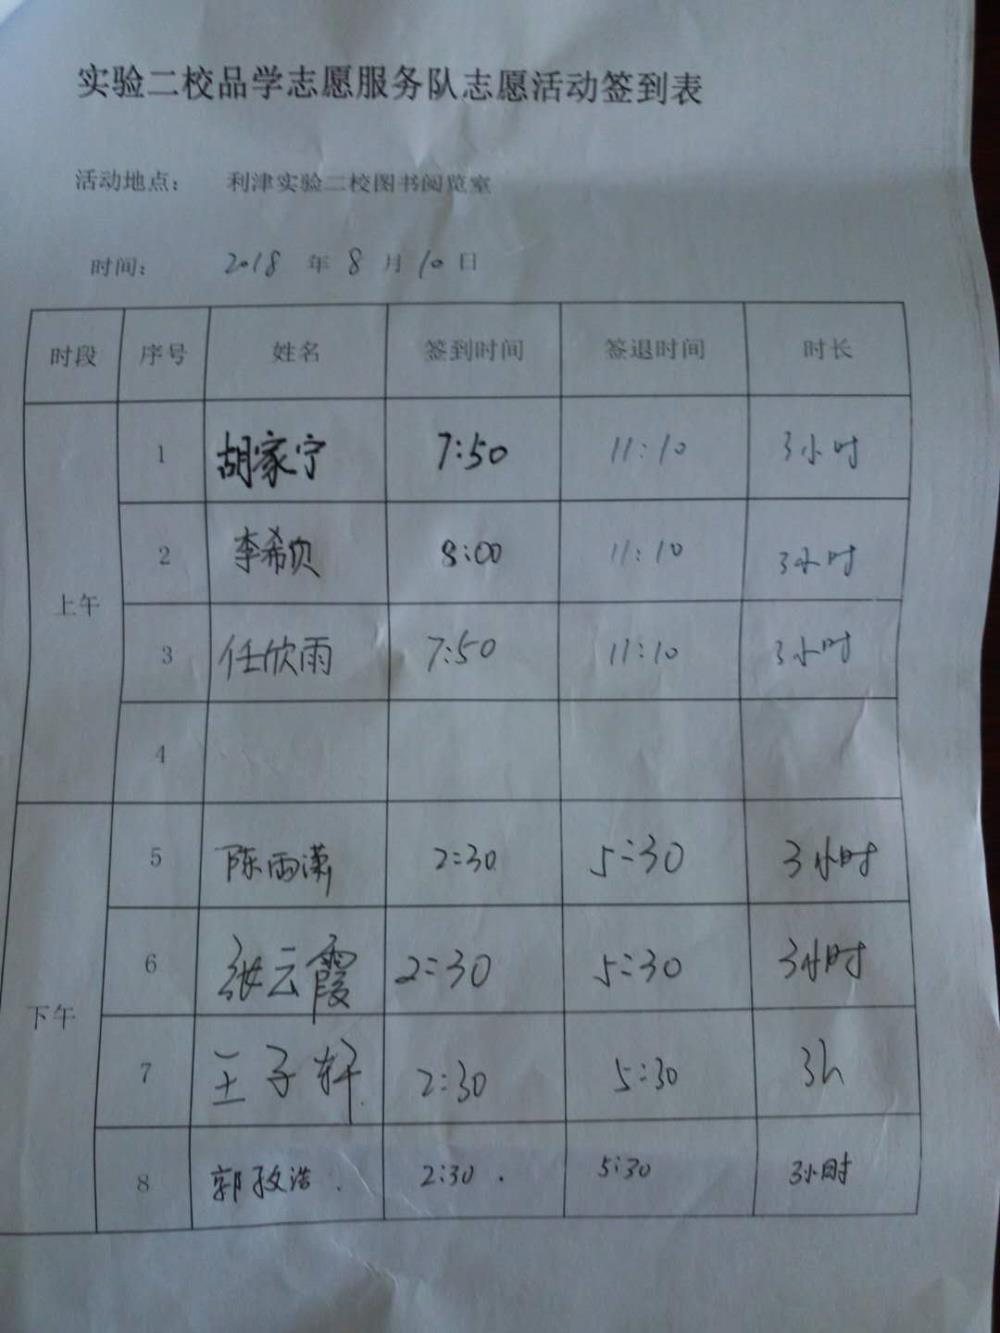 实验二校品学志愿服务队志愿活动签到表
活动地点: 利津实验二校图书阅览室
时间: 2018 年 8 月 10 日
时段 序号 姓名 签到时间 签退时间 时长
上午
1 胡家宁 7:50 11:10 3小时
2 李希贝 8:00 11:10 3小时
3 任欣雨 7:50 11:10 3小时
4
下午
5 陈雨潇 2:30 5:30 3小时
6 张云霞 2:30 5:30 3小时
7 王子轩 2:30 5:30 3h
8 郭孜浩 2:30 5:30 3小时